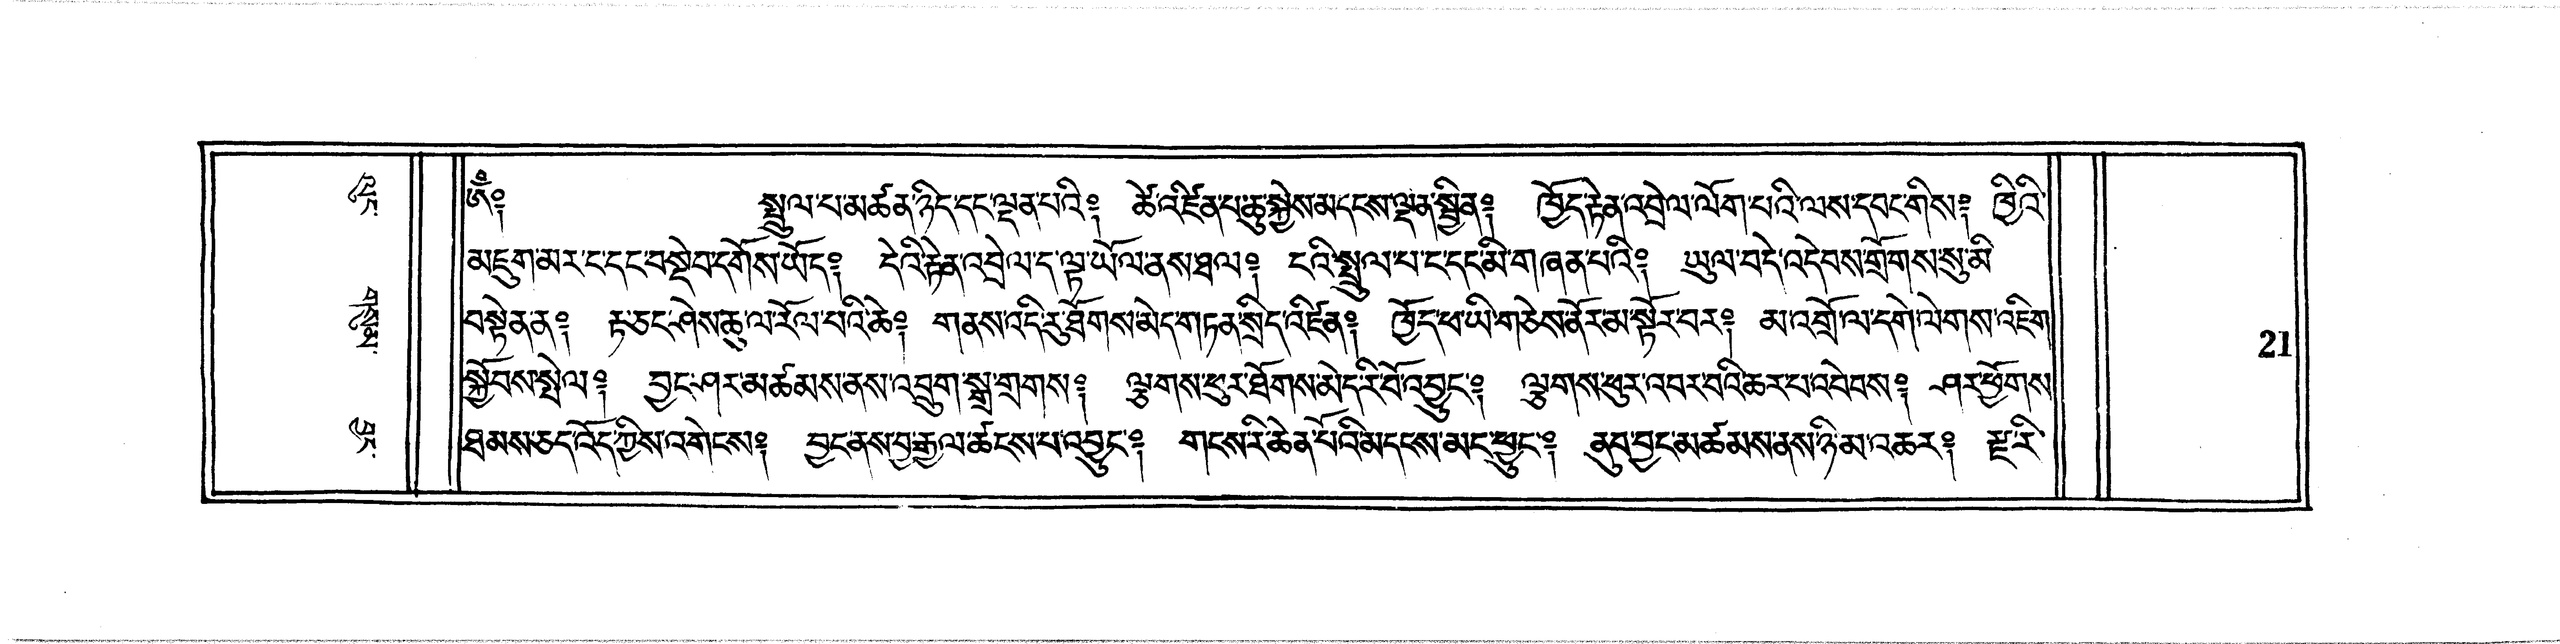 ༀ༔ སྤྲུལ་པ་མཚན་ཉིད་དང་ལྡན་པའི༔ ཚེ་འཛིན་པ་ཆུ་སྐྱེས་མདངས་ལྡན་སྦྱིན༔ ཁྱོད་རྟེན་འབྲེལ་ལོག་པའི་ལས་དབང་གིས༔ ཁྱིའི་
མཇུག་མར་ང་དང་བསྡེབ་དགོས་ཡོད༔ དེའི་རྟེན་འབྲེལ་ད་ལྟ་ཡོལ་ནས་ཐལ༔ ངའི་སྤྲུལ་པ་ང་དང་མི་གཞན་པའི༔ ཡུལ་བདེ་འདེབས་གྲོགས་སུ་མི་
བསྟེན་ན༔ རྟ་ཅང་ཤེས་ཆུ་ལ་རོལ་པའི་ཚེ༔ གནས་འདི་རུ་ཐོགས་མེད་གཏན་སྲིད་འཛིན༔ ཁྱོད་ཕ་ཡི་གཅེས་ནོར་མ་སྟོར་བར༔ མ་འགྲོ་ལ་དགེ་ལེགས་འཇིག
སྐྱོབས་སྤེལ༔ བྱང་ཤར་མཚམས་ནས་འབྲུག་སྒྲ་གྲགས༔ ལྕགས་ཕུར་ཐོགས་མེད་རི་བོ་འབྱུང༔ ལྕགས་ཕུར་འབར་བའི་ཆར་པ་འབེབས༔ ཤར་ཕྱོགས
ཐམས་ཅད་འོད་ཀྱིས་འགེངས༔ བྱང་ནས་བྱ་རྒྱལ་ཚངས་པ་འབྱུང༔ གངས་རི་ཆེན་པོའི་མདངས་མང་ཕྱུང༔ ནུབ་བྱང་མཚམས་ནས་ཉི་མ་འཆར༔ རྫ་རི་
21